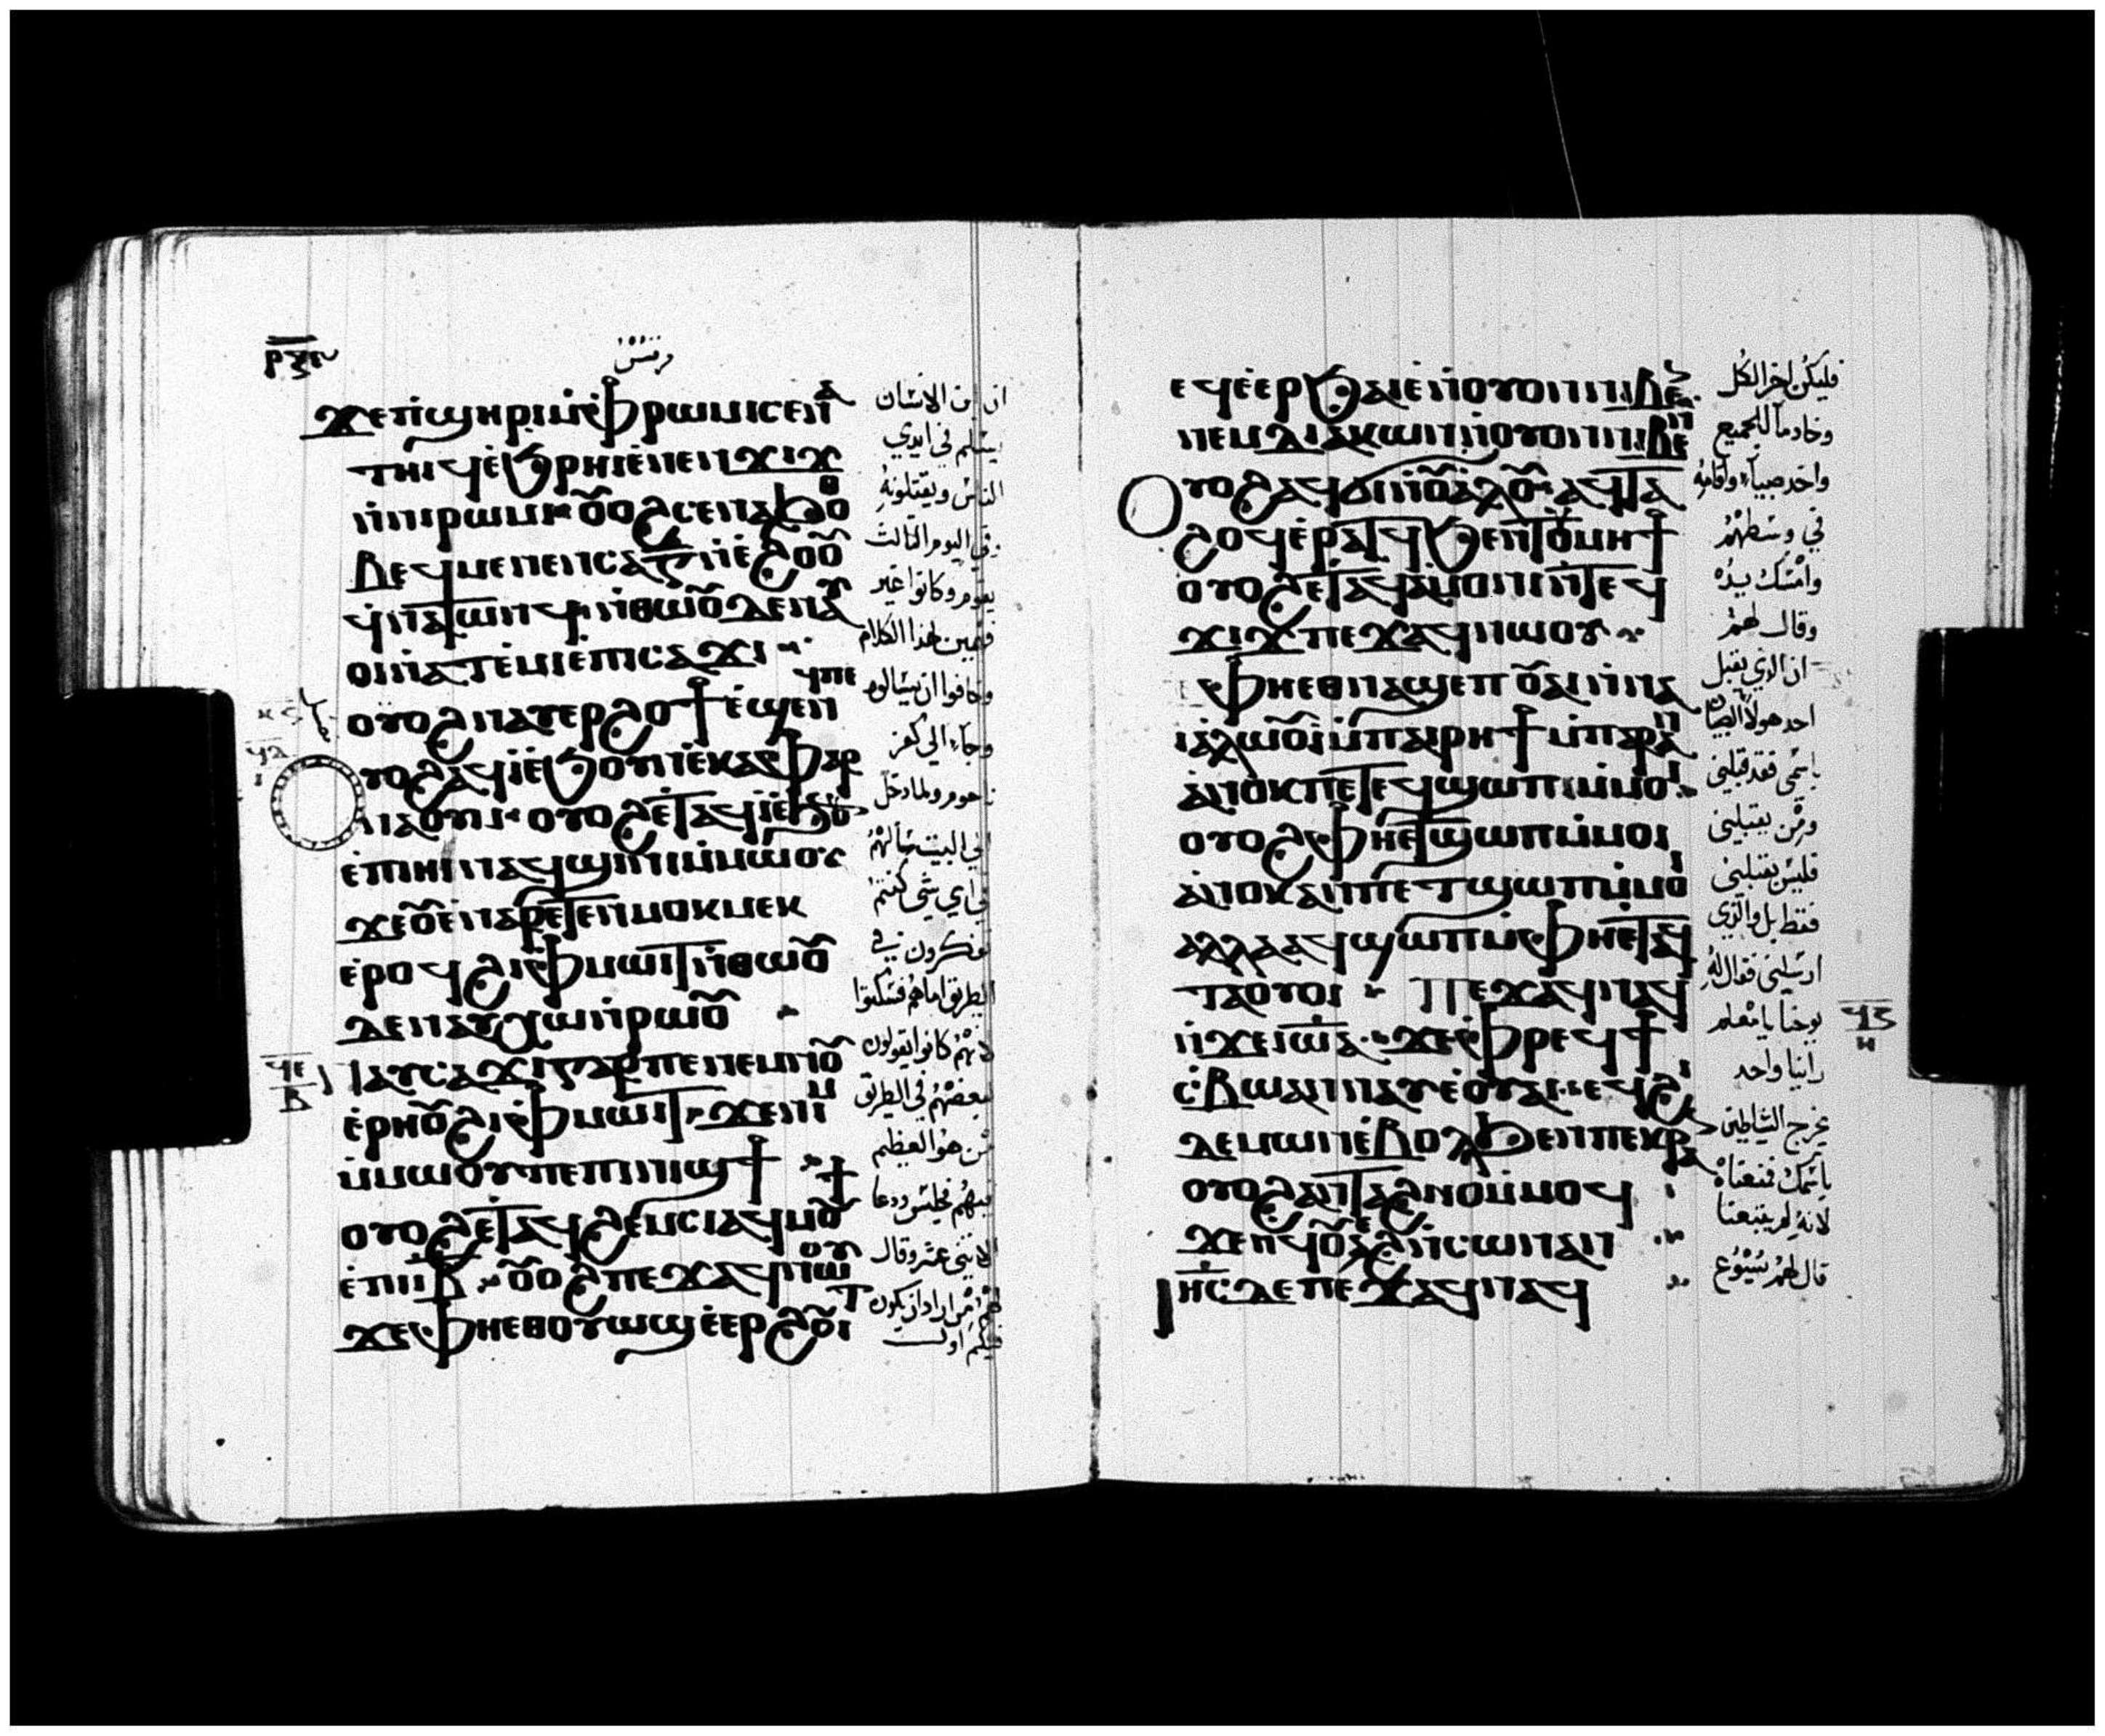 مرقس
ϫⲉⲡϣⲏⲣⲓ ⲙ̀ⲫⲣⲱⲙⲓ ⲥⲉⲛⲁ
ⲧⲏⲓϥ ⲉ̀ϧⲣⲏⲓ ⲉ̀ⲛⲉⲛϫⲓϫ
ⲛ̀ⲛⲓⲣⲱⲙⲓ ⲟⲩⲟϩ ⲥⲉⲛⲁϧⲟⲑ
ⲃⲉϥ ⲙⲉⲛⲉⲛⲥⲁ ⲅ̅ ⲛ̀ⲉ̀ϩⲟⲟⲩ
ϥ̀ⲛⲁⲧⲱⲛϥ ⲛ̀ⲑⲱⲟⲩ ⲇⲉ ⲛⲁⲩ
ⲟⲓ ⲛ̀ⲁⲧⲉ̀ⲙⲓ ⲉ̀ⲡⲓⲥⲁϫⲓ
ⲟⲩⲟϩ ⲛⲁⲩⲉⲣϩⲟϯ ⲉ̀ϣⲉⲛϥⲡⲉ
ⲟⲩⲟϩ ⲁϥⲓ̀ ⲉ̀ϧⲟⲩⲛ ⲉ̀ⲕⲁⲫⲁⲣ
ⲛⲁⲟⲩⲙ ⲟⲩⲟϩ ⲉⲧⲁϥⲓ̀ ⲉ̀ϧⲟⲩⲛ
ⲉ̀ⲡⲓⲏⲓ ⲛⲁϥϣⲓⲛⲓ ⲙ̀ⲙⲱⲟⲩ
ϫⲉ ⲟⲩ ⲉ̀ⲛⲁⲣⲉⲧⲉⲛⲙⲟⲕⲙⲉⲕ
ⲉ̀ⲣⲟϥ ϩⲓ ⲫⲙⲱⲓⲧ ⲛ̀ⲑⲱⲟⲩ
ⲇⲉ ⲛⲁⲩⲭⲱ ⲛ̀ⲣⲱⲟⲩ
ⲛⲁⲩⲥⲁϫⲓ ⲅⲁⲣ ⲡⲉ ⲛⲉⲙ ⲛⲟⲩ
ⲉ̀ⲣⲏⲟⲩ ϩⲓ ⲫⲙⲱⲓⲧ ϫⲉ ⲛⲓⲙ
ⲙ̀ⲙⲱⲟⲩ ⲡⲉ ⲡⲓⲛⲓϣϯ
ⲟⲩⲟϩ ⲉⲧⲁϥϩⲉⲙⲥⲓ ⲁϥⲙⲟⲩϯ
ⲉ̀ⲡⲓⲓ̅ⲃ̅ ⲟⲩⲟϩ ⲡⲉϫⲁϥ ⲛⲱⲟⲩ
ϫⲉ ⲫⲏⲉⲑⲟⲩⲱϣ ⲉ̀ⲉⲣϩⲟⲩⲓⲧ
ان ابن الانسان
يسلم في ايدي
الناس ويقتلونه
وفي اليوم الثالث
يقوم وكانوا غير
فهمين لهذا الكلام
وخافوا ان يسالوه
وجاء الي كفر
ناحوم ولما دخل
الي البيت سألهم
في اي شي كنتم
تفكرون في
الطريق اما هم فسكتوا
لانهم كانوا يقولون
لبعضهم في الطريق
من هو العظيم
فيهم فجلس ودعا
الاثني عشر وقال
لهم من اراد ان يكون
فيكم اول
ⲉϥⲉ̀ⲉⲣϧⲁⲉ̀ ⲛ̀ⲟⲩⲟⲛ ⲛⲓⲃⲉⲛ
ⲛⲉⲙ ⲇⲓⲁⲕⲱⲛ ⲛ̀ⲟⲩⲟⲛ ⲛⲓⲃⲉⲛ
ⲟⲩⲟϩ ⲁϥϭⲓ ⲛ̀ⲟⲩⲁ̀ⲗⲟⲩ ⲁϥⲧⲁ
ϩⲟϥ ⲉ̀ⲣⲁⲧϥ ϧⲉⲛ ⲧⲟⲩⲙⲏϯ
ⲟⲩⲟϩ ⲉⲧⲁϥⲁ̀ⲙⲟⲛⲓ ⲛ̀ⲧⲉϥ
ϫⲓϫ ⲡⲉϫⲁϥ ⲛⲱⲟⲩ
ⲫⲏⲉⲑⲛⲁϣⲉⲡ ⲟⲩⲁⲓ ⲛ̀ⲛⲁ
ⲓⲁ̀ⲗⲱⲟⲩⲓ̀ ⲙ̀ⲡⲁⲓⲣⲏϯ ⲙ̀ⲡⲁⲣⲁⲛ
ⲁ̀ⲛⲟⲕ ⲡⲉⲧⲉϥϣⲱⲡ ⲙ̀ⲙⲟⲓ
ⲟⲩⲟϩ ⲫⲏⲉⲧϣⲱⲡ ⲙ̀ⲙⲟⲓ
ⲁ̀ⲛⲟⲕ ⲁⲛ ⲡⲉⲧϣⲱⲡ ⲙ̀ⲙⲟⲓ
ⲁⲗⲗⲁ ⲁϥϣⲱⲡ ⲙ̀ⲫⲏⲉⲧⲁϥ
ⲧⲁⲟⲩⲟⲓ ⲡⲉϫⲁϥ ⲛⲁϥ
ⲛ̀ϫⲉ ⲓⲱⲁ ϫⲉ ⲫⲣⲉϥϯ
ⲥ̀ⲃⲱ ⲁⲛⲛⲁⲩ ⲉ̀ⲟⲩⲁⲓ ⲉϥϩⲓ
ⲇⲉⲙⲱⲛ ⲉ̀ⲃⲟⲗ ϧⲉⲛ ⲡⲉⲕⲣⲁⲛ
ⲟⲩⲟϩ ⲁⲛⲧⲁϩⲛⲟ ⲙ̀ⲙⲟϥ
ϫⲉ ⲛϥⲟⲩⲉϩ ⲛ̀ⲥⲱⲛ ⲁⲛ
ⲓⲏⲥ ⲇⲉ ⲡⲉϫⲁϥ ⲛⲁϥ
فليكن اخر الكل
وخادماً للجميع
واخذ صبياً واقامه
في وسطهم
وامسك بيده
وقال لهم
ان الذي يقبل
احد هولا الصبيان
باسمي فقد قبلني
ومن يقبلني
فليس يقبلني
فقط بل والذي
ارسلني فقال له
يوحنا يا معلم
راينا واحد
يخرج الشياطين
باسمك فمنعناه
لانه لم يتبعنا
قال لهم يسوع